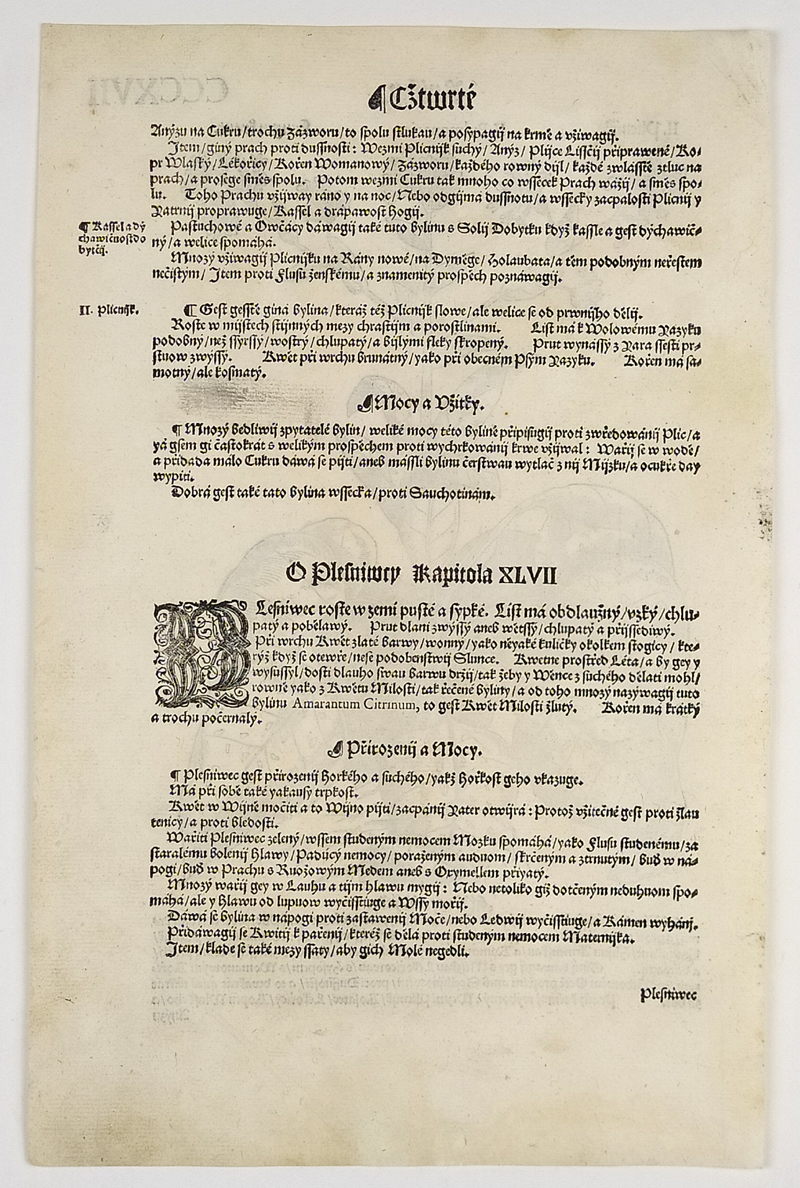 ¶ Cžtwrté
Anýzu na Cukru/trochu Zázworu/to spolu stlukau/a posypagij na krmě a vžiwagij.
Jtem/giný prach proti dussnosti: Wezmi Plicnijk suchý/Anýz/Plijce Lisščij připrawené/Ko-
pr Wlaský/Lékořicy/Kořen Womanowý/Zázworu/každého rowný dijl/každé zwlásstě ztluc na
prach/a prosege směs spolu. Potom wezmi Cukru tak mnoho co wssecek Prach wážij/a směs spo-
lu. Toho Prachu vžijway ráno y na noc/Nebo odgijmá dussnotu/a wssecky zacpalosti Plicnij y
Patrnij proprawuge/Kassel a drápawost hogij.
¶ Kassel a dý
chawičnost do
bytčij.
Pastuchowé a Owčácy dáwagij také tuto bylinu s Solij Dobytku když kassle a gest dýchawič-
ný/a welice spomáhá.
Mnozý vžiwagij Plicnijku na Rány nowé/na Dyměge/Holaubata/a těm podobným neřestem
nečistým/Jtem proti Flusu ženskému/a znamenitý prospěch poznáwagij.
II. Plicnijk.
¶ Gest gesstě giná bylina/kteráž též Plicnijk slowe/ale welice se od prwnijho dělij.
Roste w mijstech stijnných mezy chrastijm a porostlinami. List má k Wolowému Jazyku
podobný/než ssyrssý/wostrý/chlupatý/a bijlými fleky skropený. Prut wynássý z Jara ssesti pr-
stuow zwýssý. Kwět při wrchu brunátný/yako při obecném Psým Jazyku. Kořen má sa-
motný/ale kosmatý.
¶ Mocy a Vžitky.
¶ Mnozý bedliwij zpytatelé bylin/weliké mocy této bylině připisugij proti zwředowánij Plic/a
yá gsem gi častokrát s welikým prospěchem proti wychrkowánij krwe vžijwal: Wařij se w wodě/
a přidadá málo Cukru dáwá se pijti/aneb mássli bylinu čerstwau wytlač z nij Mijzku/a ocukře day
wypiti.
Dobrá gest také tato bylina wssecka/proti Sauchotinám.
O Plesniwcy Kapitola XLVII
PLesniwec roste w zemi pusté a sypké. List má obdlaužný/vzký/chlu-
patý a poběláwý. Prut dlani zwýssý aneb wětssý/chlupatý a přijssediwý.
Při wrchu Kwět zlaté barwy/wonný/yako něyaké kuličky okolkem stogicý/kte-
rýž když se otewře/nese podobenstwij Slunce. Kwetne prostřed Léta/a by gey y
wysussyl/dosti dlauho swau barwu držij/tak žeby y Wence z suchého dělati mohl/
rowně yako z Kwětu Milosti/tak řečené byliny/a od toho mnozý nazýwagij tuto
bylinu Amarantum Citrinum, to gest Kwět Milosti žlutý. Kořen má krátký
a trochu počernalý.
¶ Přirozenij a Mocy.
¶ Plesniwec gest přirozenij horkého a suchého/yakž hořkost geho vkazuge.
Má při sobě také yakausy trpkost.
Kwět w Wijně močiti a to Wijno pijti/zacpánij Jater otwijrá: Protož vžitečné gest proti žlau
tenicy/a proti bledosti.
Wařiti Plesniwec zelený/wssem studeným nemocem Mozku spomáhá/yako Flusu studenému/za
staralému bolenij Hlawy/Padúcý nemocy/poraženým auduom/skrčeným a ztrnutým/buď w ná-
pogi/buď w Prachu s Ruožowým Medem aneb s Oxymellem přiyatý.
Mnozý wařij gey w Lauhu a tijm hlawu mygij: Nebo netoliko giž dotčeným neduhuom spo-
máhá/ale y hlawu od lupuow wyčisstiuge a Wssy mořij.
Dáwá se bylina w nápogi proti zastawenij Moče/nebo Ledwij wyčisstiuge/a Kámen wyhánj.
Přidáwagij se Kwitij k pařenij/kteréž se dělá proti studeným nemocem Maternijka.
Jtem/klade se také mezy ssaty/aby gich Molé negedli.
Plesniwec